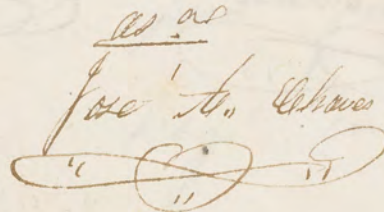 José A. Chaves